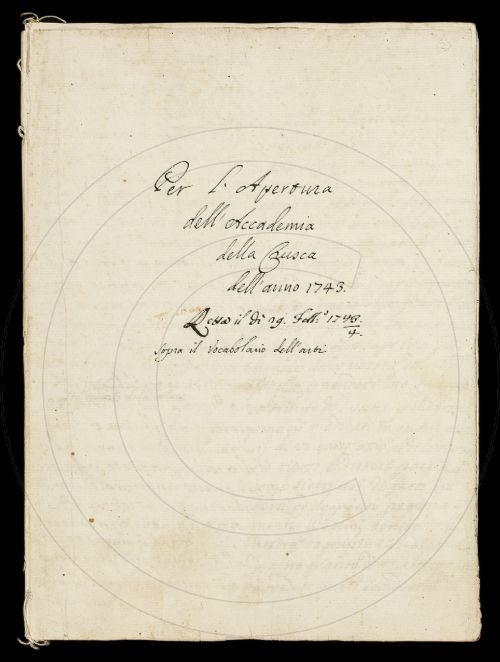 Per l'Apertura
dell'Accademia
della Crusca
dell'anno 1743.
Letto il dì 29. Febb.º 1743/4.
sopra il Vocabolario dell'arti